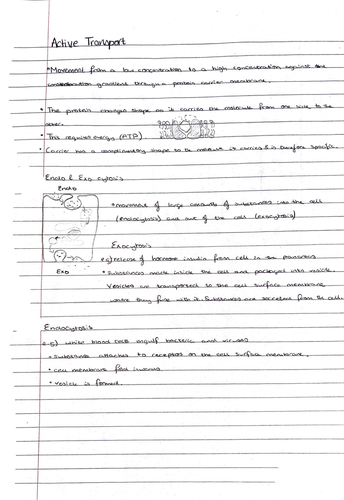 Active Transport
• Movement from a low concentration to a high concentration against the
concentration gradient through a protein carrier membrane.
• The protein changes shape as it carries the molecule from one side to the
other.
• This requires energy (ATP)
• Carrier has a complimentary shape to the molecule it carries & is therefore specific.
Endo & Exo cytosis
Endo
• movement of large amounts of substances into the cell
(endocytosis) and out of the cell (exocytosis)
Exocytosis
e.g) release of hormone insulin from cells in the pancreas
• Substances made inside the cell and packaged into vesicle.
Vesicles are transported to the cell surface membrane
where they fuse with it. Substances are secreted from the cell.
Exo
Endocytosis
e.g) white blood cells engulf bacteria and viruses
• Substance attaches to receptors on the cell surface membrane.
• cell membrane fold inwards
• vesicle is formed.